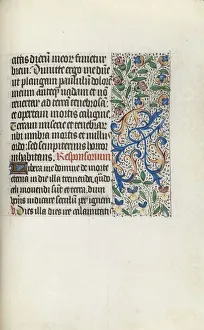 etas dierum meorum finietur
brevi. Dimitte ergo me dne
ut plangam paululum dolore
meum anteq vadam et no
revertar ad terra tenebrosa
et opertam mortis caligine
Terram miserie et tenebrar
ubi umbra mortis et nullus
ordo sed sempiternus horror
inhabitans. Responsorium
Libera me domine de morte
eterna in die illa tremenda quado
celi movendi sunt et terra Dum
veneris iudicare seculum per ignem
Dies illa dies ire calamitatis